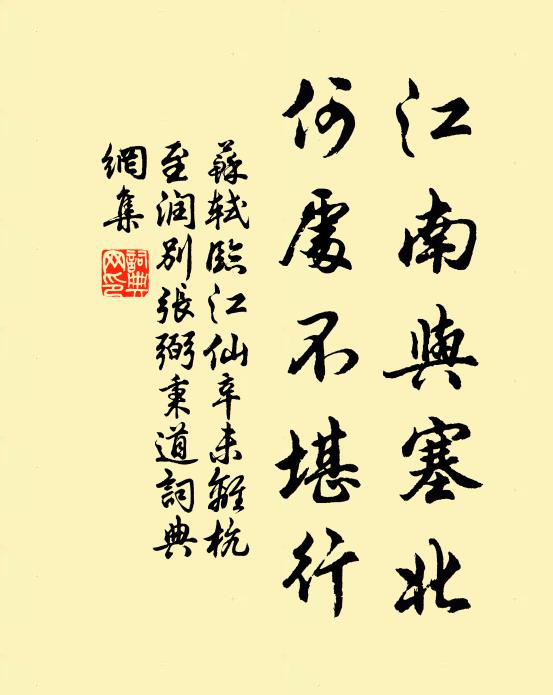 江南與塞北
何處不堪行
蘇軾臨江仙辛未離杭
至润别張弼秉道詞典
網集
詞典網印